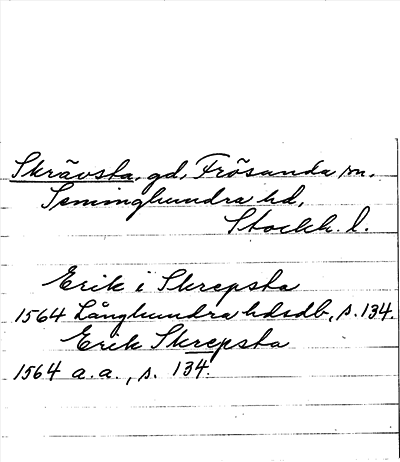 Skrävsta, gd, Frösunda sn,
Seminghundra hd,
Stockh. l.
Erik i Skrepsta
1564 Långhundra hdsdb, s. 134.
Erik Skrepsta
1564 a.a., s. 134.